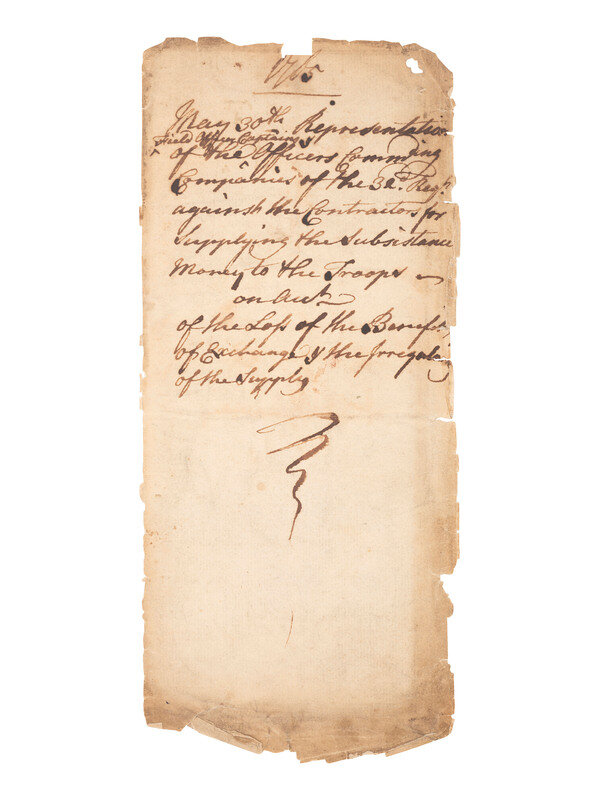 1765
May 30th Representation
Field Officers Captains &
of the Officers Comm'ding
Companies of the 32d Regt
against the Contractors for
Supplying the Subsistance
Money to the Troops —
on Acct
of the Loss of the Benefit
of Exchange & the Irregula
of the Supply